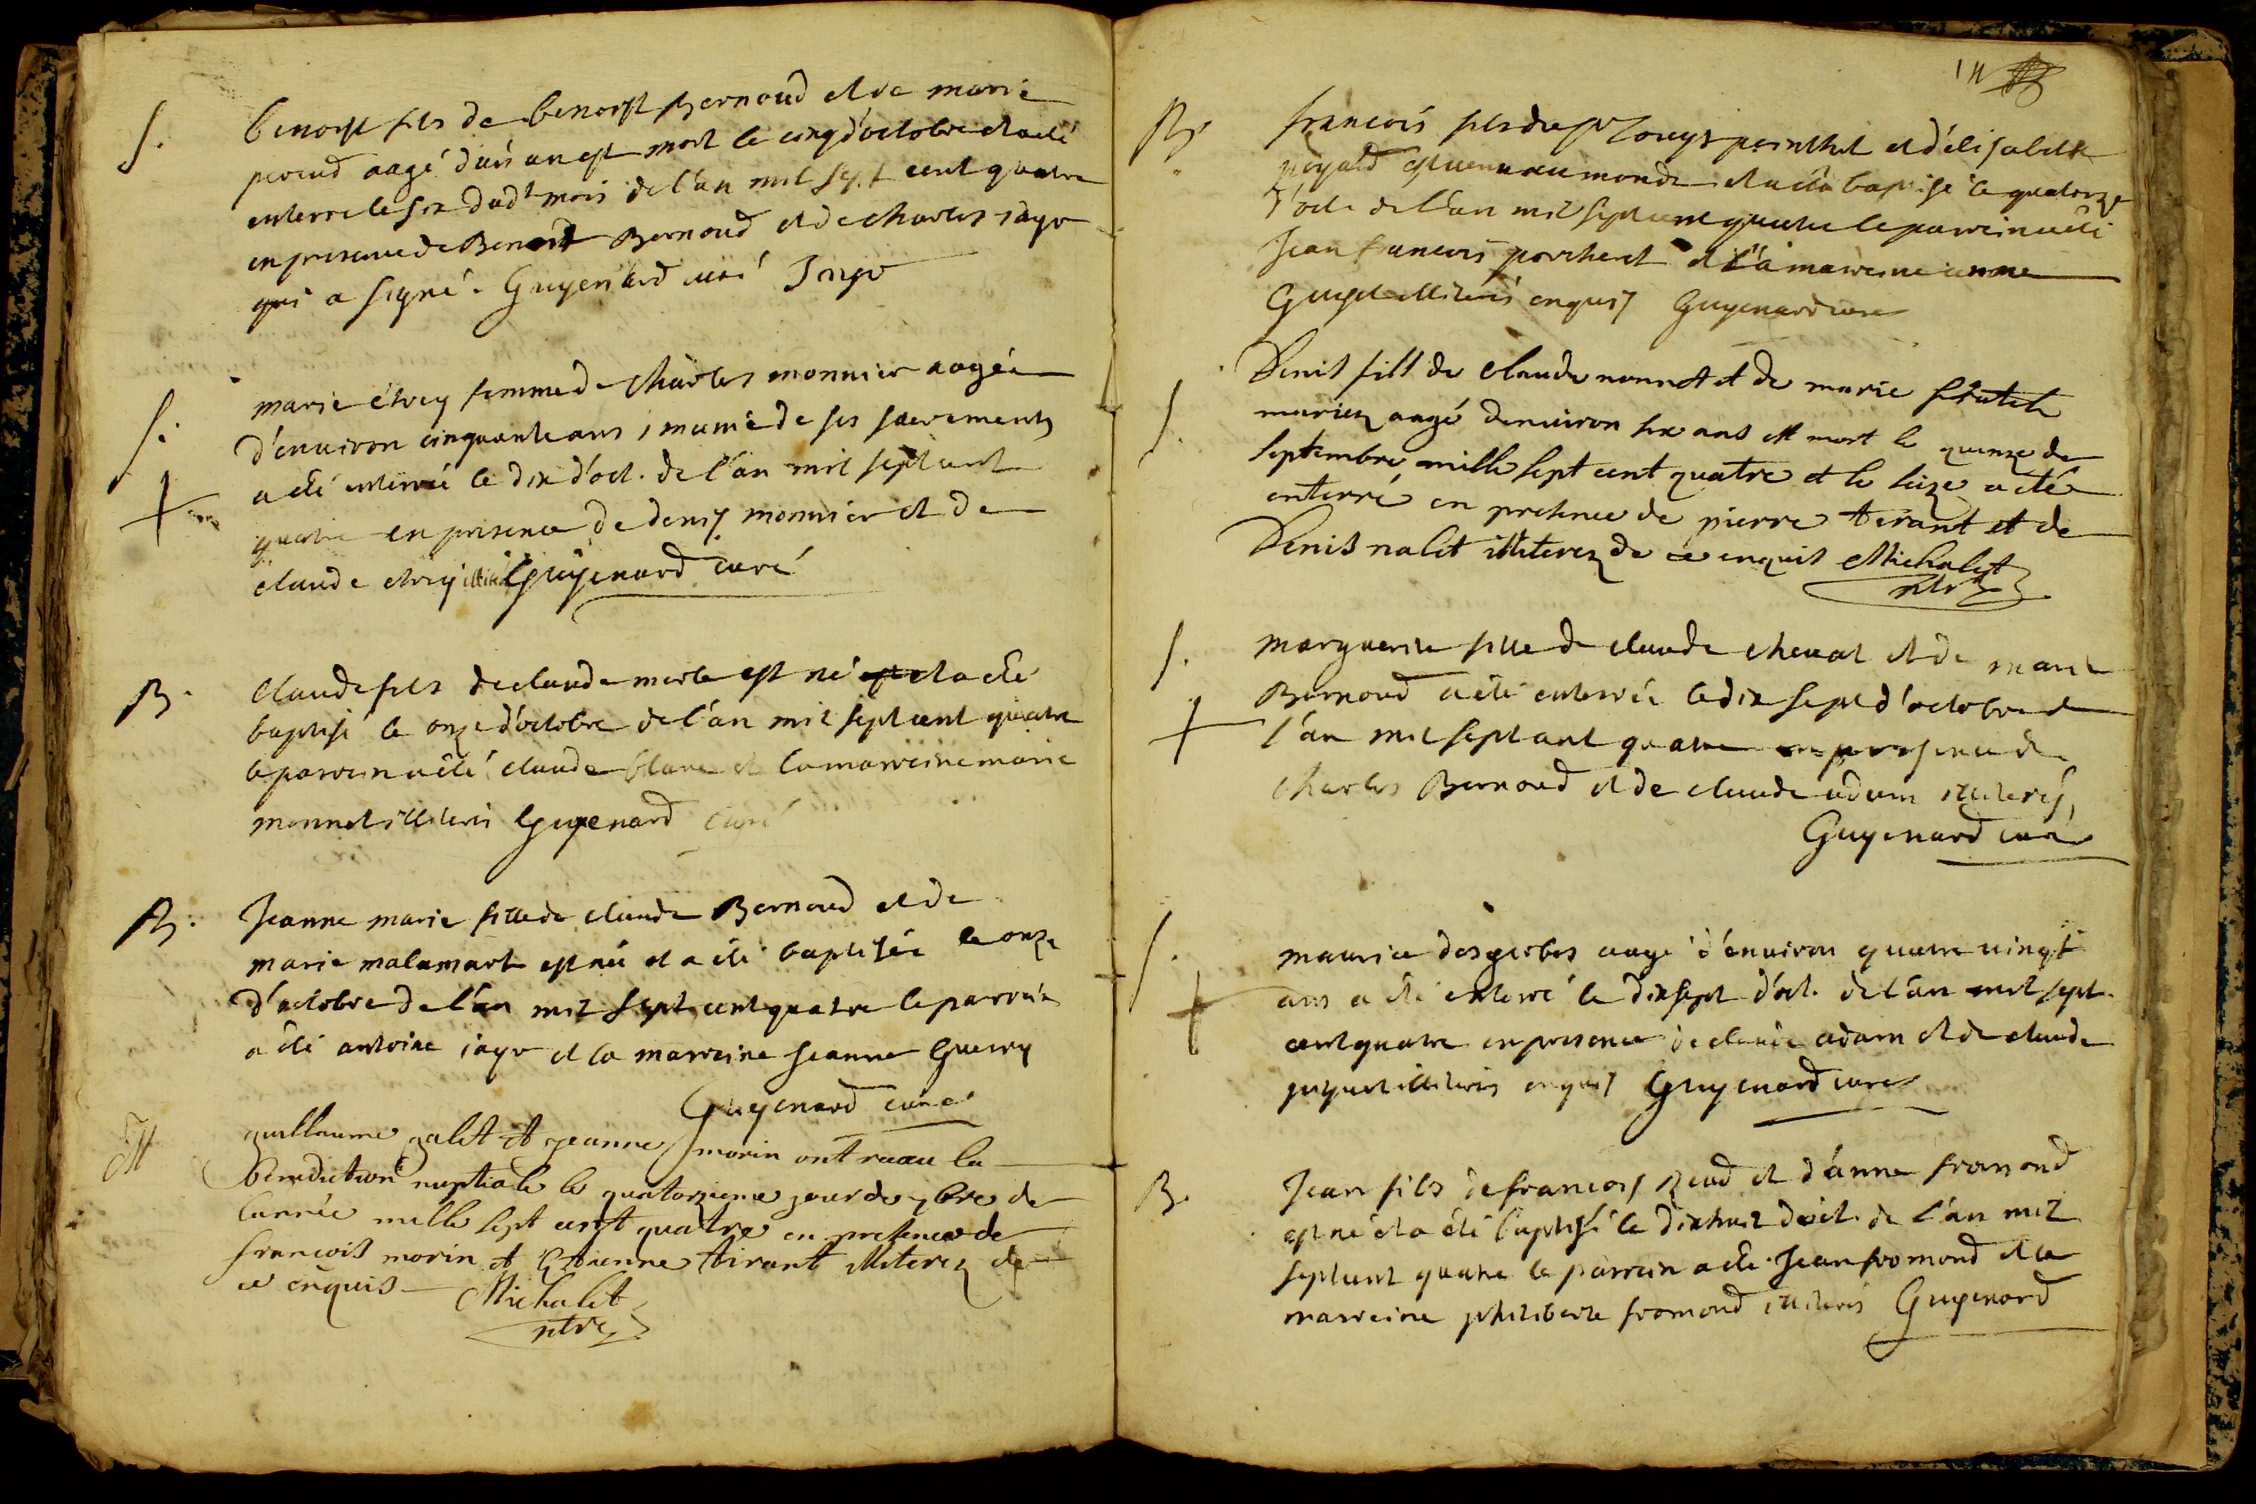 S. benoist fils de benoist Bernoud et de marie
peroud aagé d'un an est mort le cinq d'octobre et a été
enterre le six dudt mois de l'an mil sept cent quatre
en presence de Benoit Bernoud et de charles jayr
qui a signé. Guyenard curé Jayr
S. marie etvey femme de charles monnier aagée
d'environ cinquante ans, munie de ses sacrements
a été enterrée le dix d'oct. de l'an mil sept cent
quatre en presence de denis monnier et de
claude etvey Guyenard curé
B. Claude fils de claude merle est né et a été
baptisé le onze d'octobre de l'an mil sept cent quatre
le parrein a été claude blanc et la marreine marie
monnet illiterés Guyenard curé
B. Jeanne marie fille de claude Bernoud et de
marie malamart est née et a été baptisée le onze
d'octobre de l'an mil sept cent quatre le parrein
a été antoine jayr et la marreine jeanne Guerry
Guyenard curé
M guillaume galet et jeanne morin ont receu la
benediction nuptiale le quatorzieme jour de
l'année mille sept cent quatre en presence de
francois morin et Etienne tirant illiterez de
ce enquis Michalet
ptre
B. francois fils de Sr et d'élisabeth
est venu au monde et a été baptisé le quatorze
d'oct. de l'an mil sept cent quatre le parrein a été
Jean francois porcheret et la marreine anne
illiterés enquis Guyenard curé
S. Denis fils de Claude nonnet et de marie
mariez aagé denviron six ans est mort le quinze de
septembre mille sept cent quatre et le seize a eté
enterré en presence de pierre tirant et de
Denis nalet illiterez de ce enquis Michalet
ptre
S. marguerite fille de claude cheval et de marie
Bernoud a été enterrée le dix sept d'octobre de
l'an mil sept cent quatre en presence de
charles Bernoud et de claude adam illiterés
Guyenard curé
S. maurice desgerbes aagé d'environ quatre vingt
ans a été enterré le dix sept d'oct. de l'an mil sept
cent quatre en presence de claude adam et de claude
illiterés enquis Guyenard curé
B. Jean fils de francois et d'anne fromond
est né et a été baptisé le dix huit d'oct. de l'an mil
sept cent quatre le parrein a été Jean fromond et la
marreine philiberte fromond illiterés Guyenard